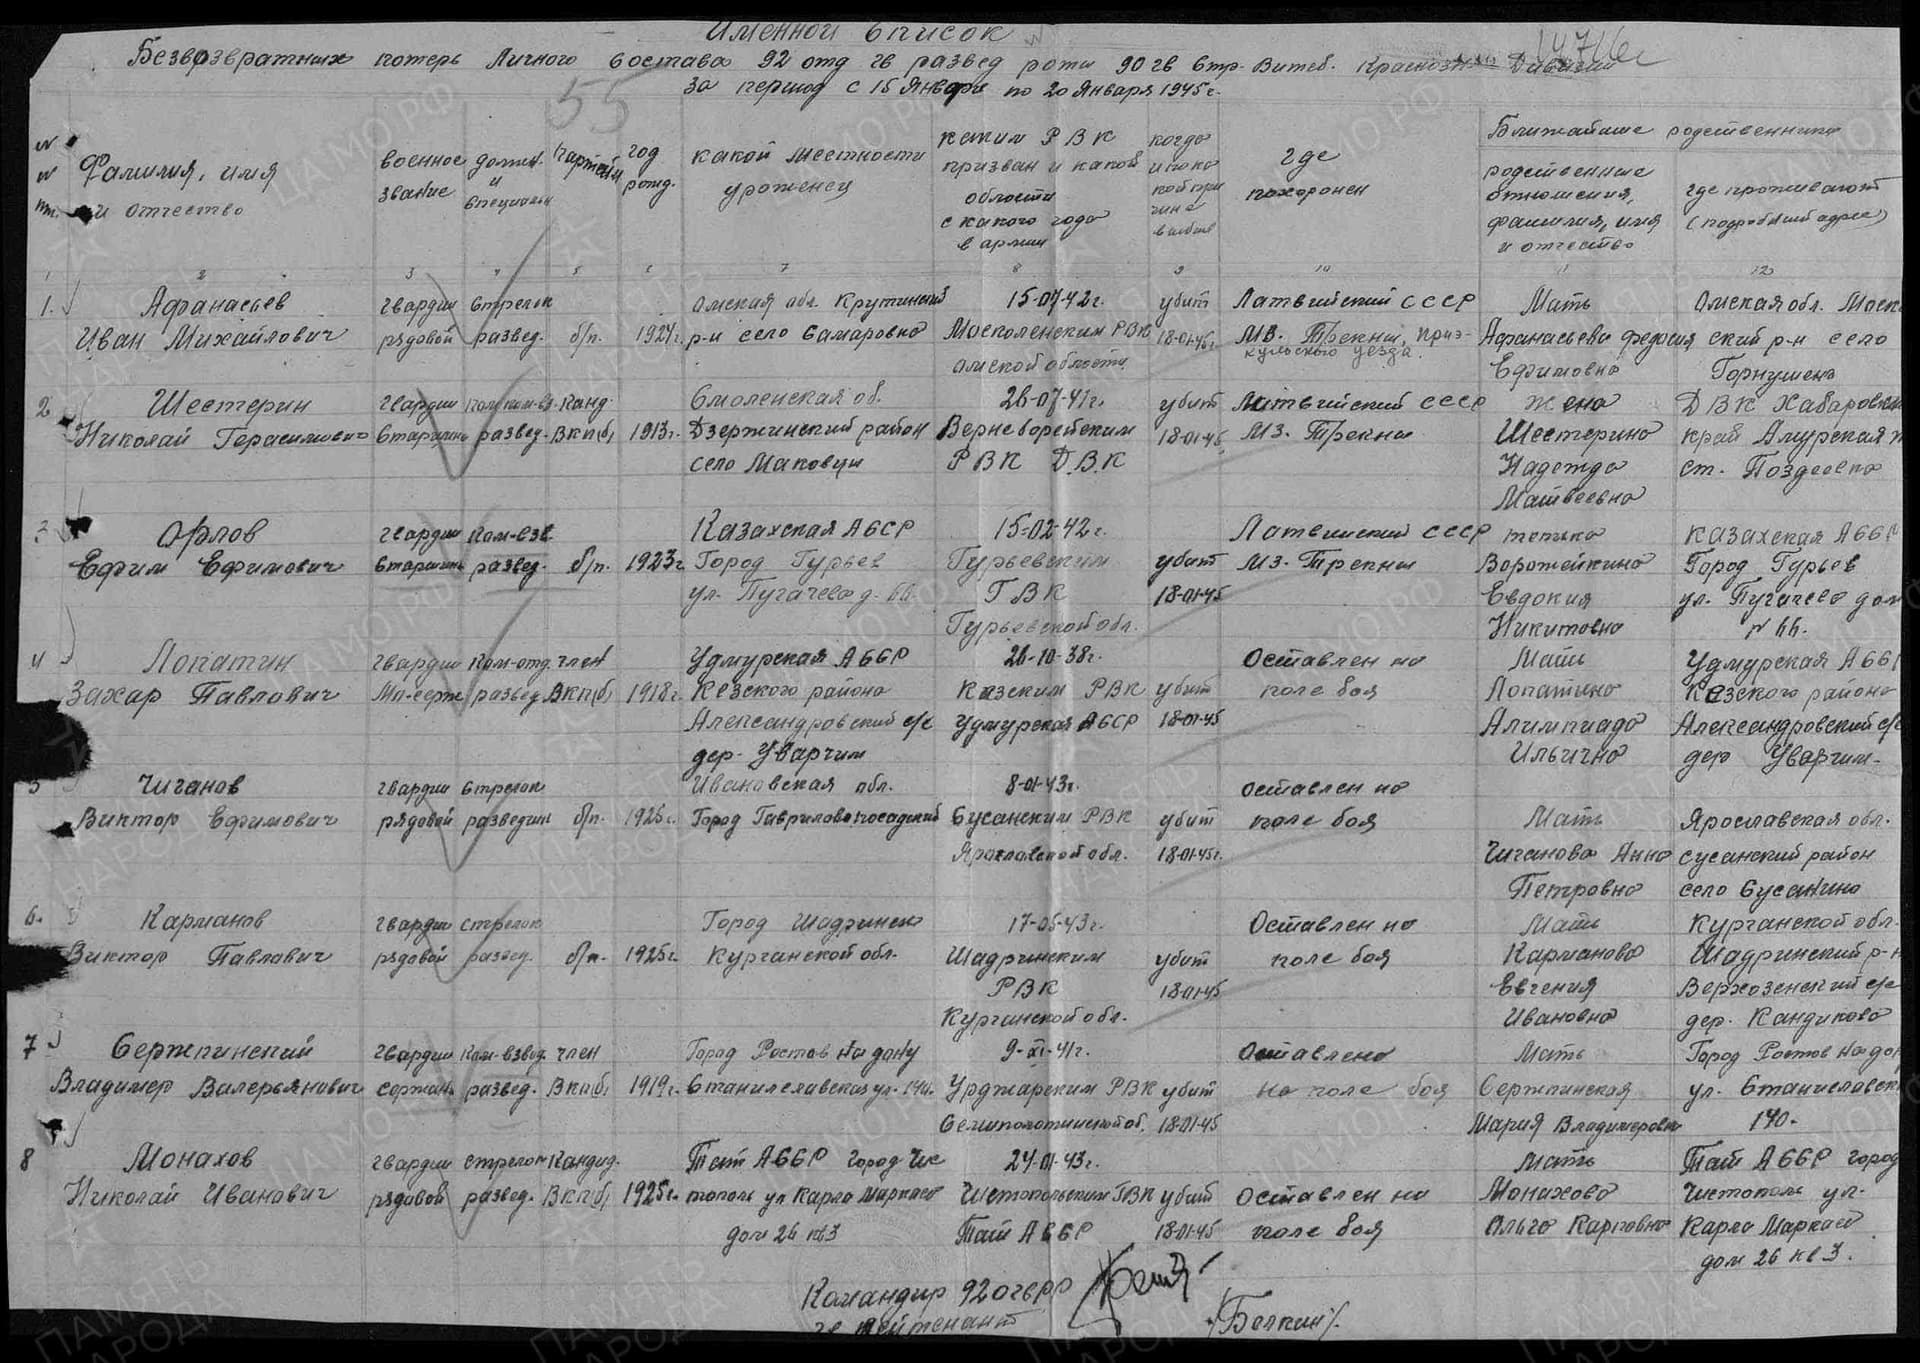 Именной список
Безвозвратных потерь Личного состава 92 отд гв развед роты 90 гв стр. Витеб. Краснозн. Дивизии
за период с 15 Января по 20 Января 1945 г.
55
Фамилия, имя и отчество
военное звание
должн. и специальн
партийн
год рожд.
какой местности уроженец
каким РВК призван и какой области с какого года в армии
когда и по какой причине выбыл
где похоронен
Ближайшие родственники
родственные отношения, фамилия, имя и отчество
где проживают (подробный адрес)
2 3 4 5 6 7 8 9 10 11 12
1. Афанасьев гвардии стрелок Омская обл. Крутинский 15-07-42г. убит Латвийский СССР Мать Омская обл. Моск
Иван Михайлович рядовой развед. б/п. 1924г. р-н село Самаровка Москаленским РВК 18-01-45г МВ. Трекни, Приэ- Афанасьева Федосия ский р-н село
Омской области кульского уезда. Ефимовна
2 Шестерин гвардии пом ком-вз. Канд. Смоленская об. 26-07-41г. убит Латвийский СССР Жена ДВК Хабаровский
Николай Герасимович старшина развед. ВКП(б) 1913г. Дзержинский район РВК 18-01-45 МЗ. Трекни Шестерина край Амурская
село Маковуш РВК ДВК Надежда ст. Поздеевка
Матвеевна
3 Орлов гвардии Ком-взв. Казахская АССР 15-02-42г. Латвийский СССР тетка Казахская АССР
Ефим Ефимович старшина развед. б/п. 1923г Город Гурьев Гурьевским убит МЗ. Трекни Ворожейкина Город Гурьев
ул. Пугачева д. 66. ГВК 18-01-45 Евдокия ул. Пугачева дом
Гурьевской обл. Никитовна № 66.
4 Лопатин гвардии Ком-отд. член Удмурская АССР 26-10-38г. Оставлен на Мать Удмурская АССР
Захар Павлович Мл-серж развед ВКП(б) 1918г. Кезского района Кезским РВК убит поле боя Лопатина Кезского района
Александровский с/с Удмурская АССР 18-01-45 Алимпиада Александровский с/с
дер. Уварчим Ильична дер Уварчим-
5 Чиганов гвардии стрелок Ивановская обл. 8-01-43г. Оставлен на
Виктор Ефимович рядовой разведчик б/п. 1925г. Город Гаврилово посадский Сусанским РВК убит поле боя Мать Ярославская обл.
Ярославской обл. 18-01-45г. Чиганова Анна Сусанский район
Петровна село Сусанино
6. Карманов гвардии стрелок Город Шадринск 17-05-43г. Оставлен на Мать Курганской обл.
Виктор Павлович рядовой развед. б/п. 1925г. Курганской обл. Шадринским убит поле боя Карманова Шадринский р-н
РВК 18-01-45 Евгения с/с
Курганской обл. Ивановна дер. Кандиково
7 Сержпинский гвардии Ком-взвод. член Город Ростов на дону 9-XI-41г. Оставлена Мать Город Ростов на дон
Владимер Валерьянович сержант развед. ВКП(б) 1919г. Станилеславская ул. 140. Урджарским РВК убит на поле боя Сержпинская ул. Станиславск
Семипалатинской об. 18-01-45 Мария Владимеровна 140.
8 Монахов гвардии стрелок Кандид. Тат АССР город Чис 24-01-43г. Мать Тат АССР город
Николай Иванович рядовой развед. ВКП(б) 1925г. тополь ул Карла Маркса Чистопольским ГВК убит Оставлен на Монахова Чистополь ул.
дом 26 кв3 Тат АССР 18-01-45 поле боя Ольга Карповна Карла Маркса
дом 26 кв 3.
Командир 92 огврр
гв лейтенант /Белкин/.